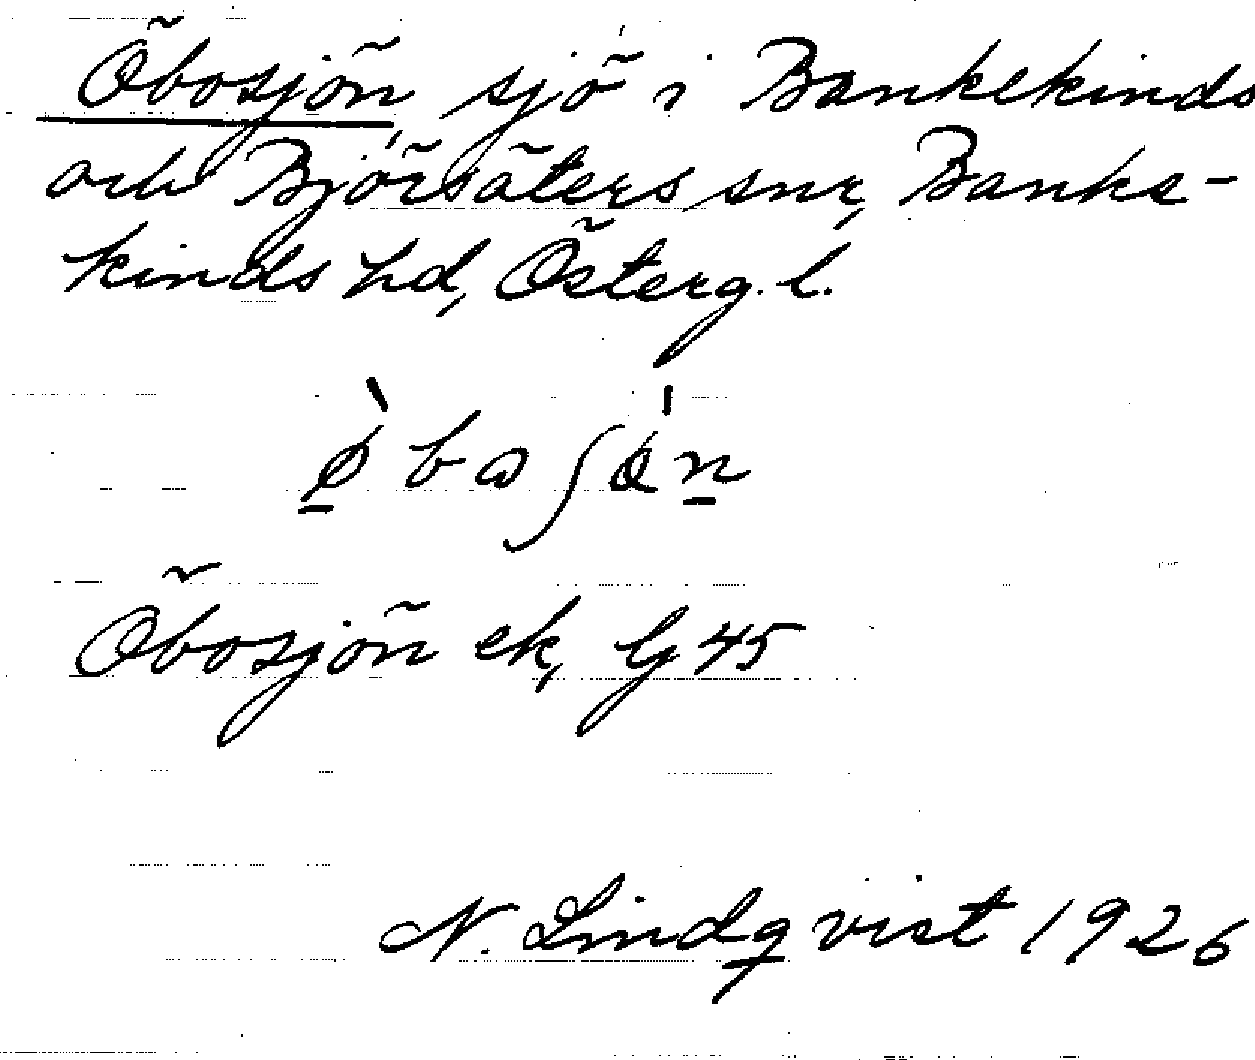 Öbosjön, sjö i Bankekinds
och Björsäters snr, Banke-
kinds hd, Österg. l.
Öbosjön ek, bj 45
N. Lindqvist 1926